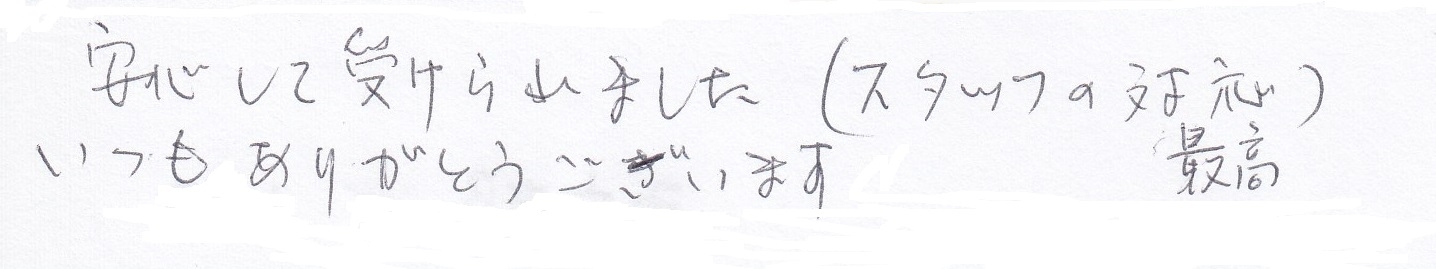 安心して受けられました(スタッフの対応)
いつもありがとうございます
最高